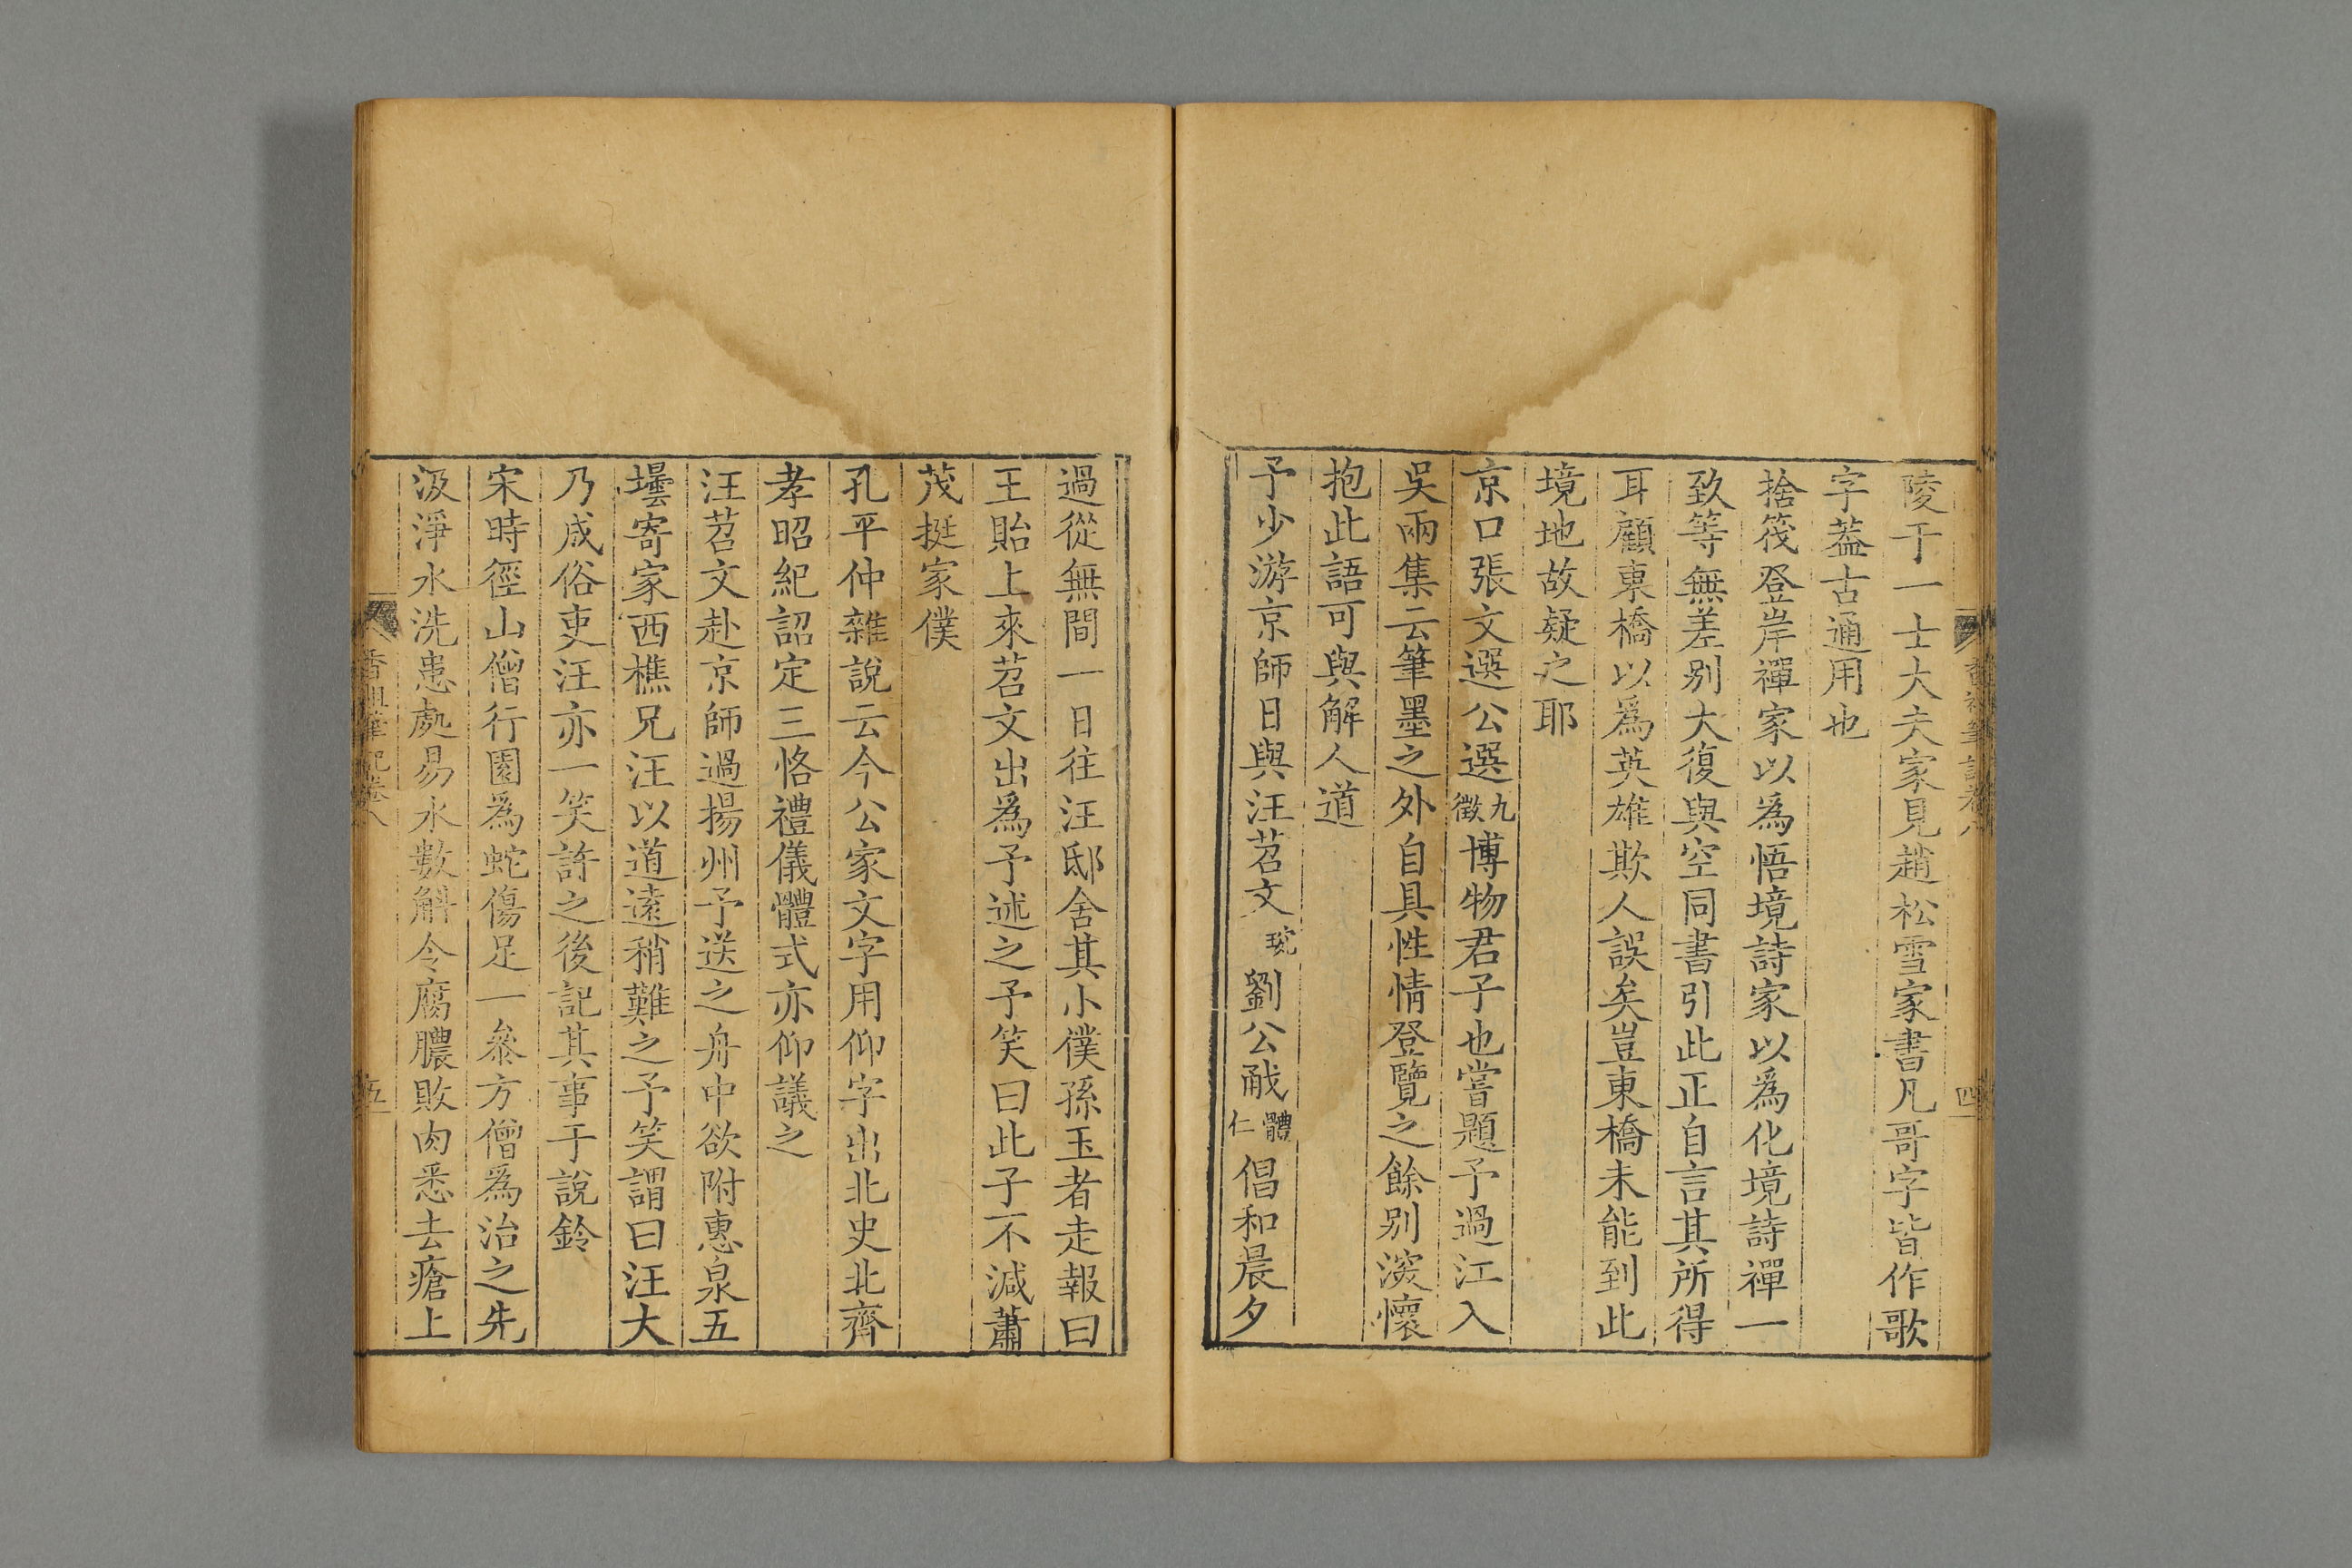 陵于一士大夫家見趙松雪家書凡哥字皆作歌
字葢古通用也
捨筏登岸禪家以為悟境詩家以為化境詩禪一
致等無差别大復與空同書引此正自言其所得
耳顧東橋以為英雄欺人誤矣豈東橋未能到此
境地故疑之耶
京口張文選公選九徵博物君子也嘗題予過江入
吳兩集云筆墨之外自具性情登覽之餘别深懷
抱此語可與解人道
予少游京師日與汪苕文琬劉公㦷體仁倡和晨夕
香祖筆記卷八
四
過從無間一日往汪邸舍其小僕孫玉者走報曰
王貽上來苕文出為予述之予笑曰此子不減蕭
茂挺家僕
孔平仲雜說云今公家文字用仰字出北史北齊
孝昭紀詔定三恪禮儀體式亦仰議之
汪苕文赴京師過揚州予送之舟中欲附惠泉五
壜寄家西樵兄汪以道遠稍難之予笑謂曰汪大
乃成俗吏汪亦一笑許之後記其事于說鈴
宋時徑山僧行園為蛇傷足一叅方僧為治之先
汲淨水洗患處易水數斛令腐膿敗肉悉去瘡上
香祖筆記卷八
五